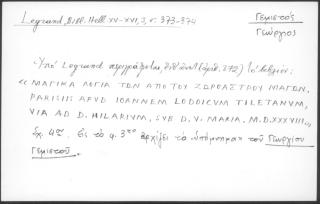 Legrand, Bibl. Hell. XV-XVI, 3, σ: 373-374
Γεμιστός
Γεώργιος
Ὑπὸ Legrand περιγράφεται, (ἀριθ. 372) τὸ βιβλίον:
«ΜΑΓΙΚΑ ΛΟΓΙΑ ΤΩΝ ΑΠΟ ΤΟΥ ΖΩΡΟΑΣΤΡΟΥ ΜΑΓΩΝ.
PARISIIS APUD IOANNEM LODOICUM TILETANUM,
VIA AD D. HILARIUM, SUB D. V. MARIA. M.D.XXXVIII».
Σχ. 4ον. εἰς τὸ φ. 3το ἀρχίζει τὸ ὑπόμνημα τοῦ Γεωργίου
Γεμιστοῦ.